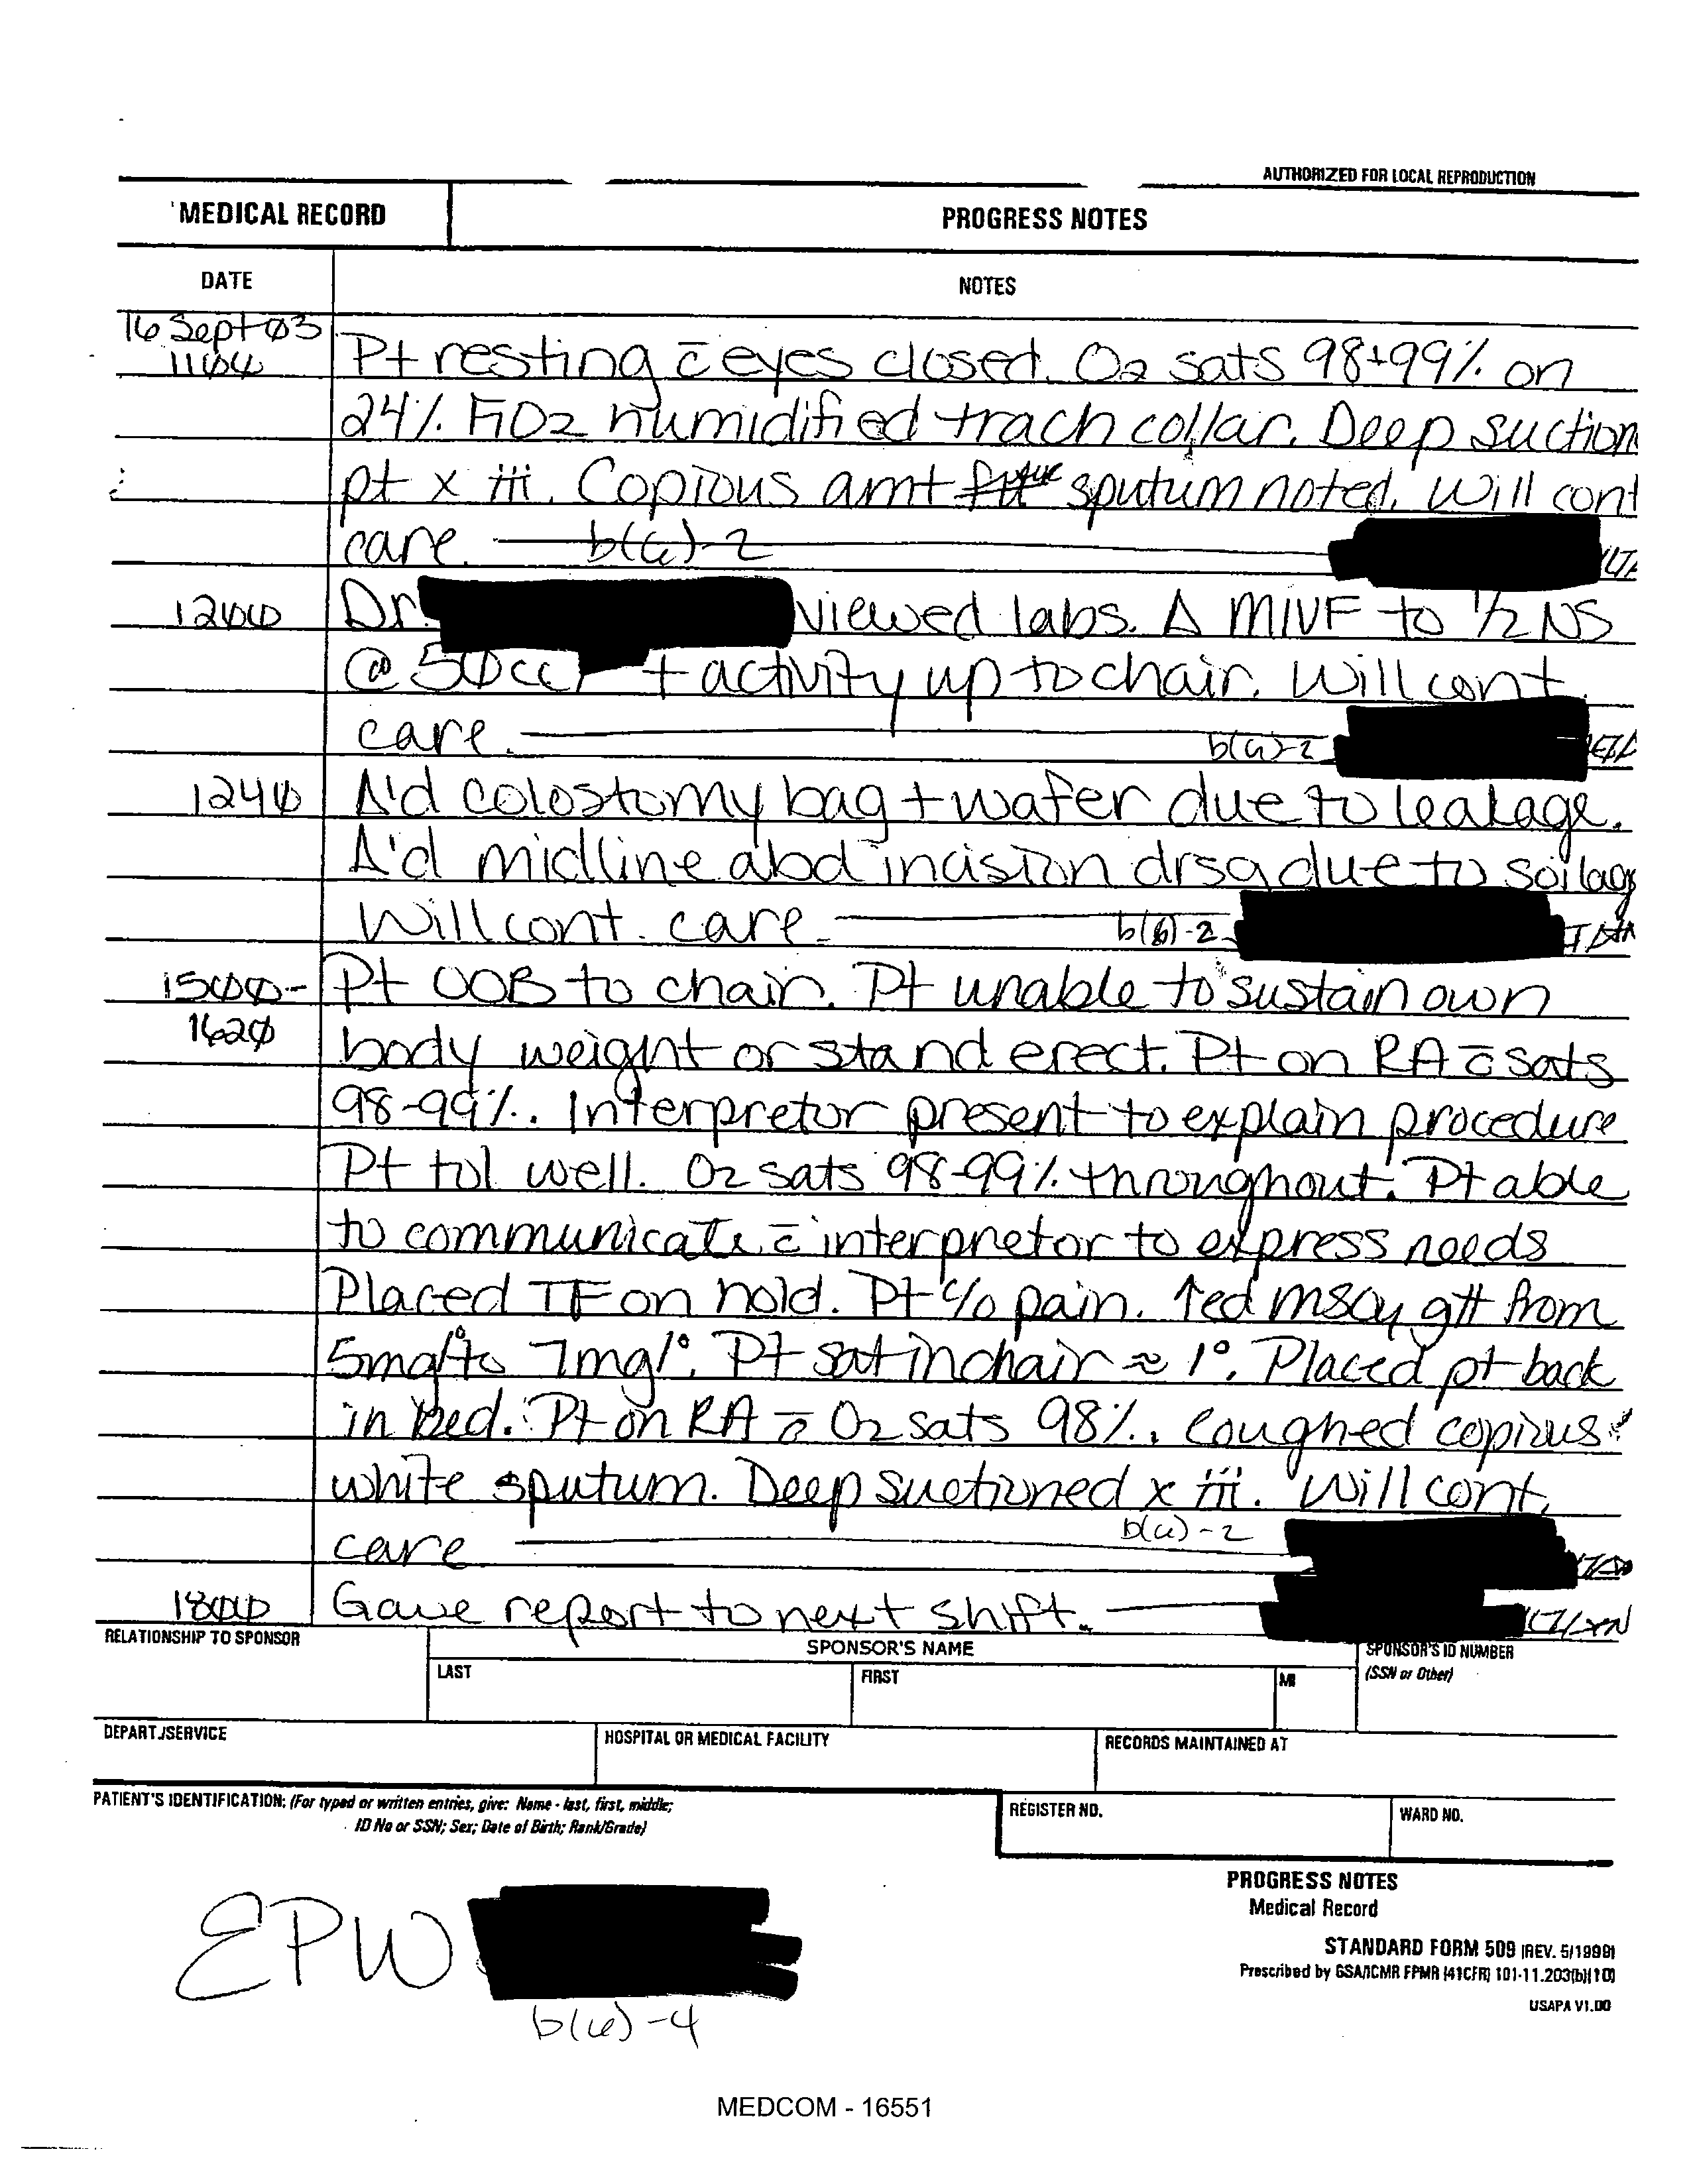 AUTHORIZED FOR LOCAL REPRODUCTION
MEDICAL RECORD
PROGRESS NOTES
DATE
NOTES
16 Sept 03
1100
Pt resting c̄ eyes closed. O2 sats 98+99% on
24% FiO2 humidified trach collar. Deep suction
pt x iii. Copious amt sputum noted. Will cont
care. b(6)-2
1200 Dr. viewed labs. Δ MIVF to 1/2 NS
@ 50cc + activity up to chair. Will cont
care. b(6)-2
1240 Δ'd colostomy bag + wafer due to leakage.
Δ'd midline abd incision drsg due to soilag
Will cont. care. b(6)-2
1500- Pt OOB to chair. Pt unable to sustain own
1620 body weight or stand erect. Pt on RA c̄ sats
98-99%. Interpretor present to explain procedure
Pt tol well. O2 sats 98-99% throughout. Pt able
to communicate c̄ interpretor to express needs
Placed TF on hold. Pt c/o pain. ↑ed MSO4 gtt from
5mg/° to 7mg/°. Pt sat in chair ≈ 1°. Placed pt back
in bed. Pt on RA c̄ O2 sats 98%. Coughed copius
white sputum. Deep suctioned x iii. Will cont.
care b(6)-2
1800 Gave report to next shift.
RELATIONSHIP TO SPONSOR
SPONSOR'S NAME
SPONSOR'S ID NUMBER
LAST
FIRST
MI
(SSN or Other)
DEPART./SERVICE
HOSPITAL OR MEDICAL FACILITY
RECORDS MAINTAINED AT
PATIENT'S IDENTIFICATION: (For typed or written entries, give: Name - last, first, middle;
ID No or SSN; Sex; Date of Birth; Rank/Grade)
REGISTER NO.
WARD NO.
PROGRESS NOTES
Medical Record
STANDARD FORM 509 (REV. 5/1999)
Prescribed by GSA/ICMR FPMR (41CFR) 101-11.203(b)(10)
USAPA V1.00
EPW
b(6)-4
MEDCOM - 16551